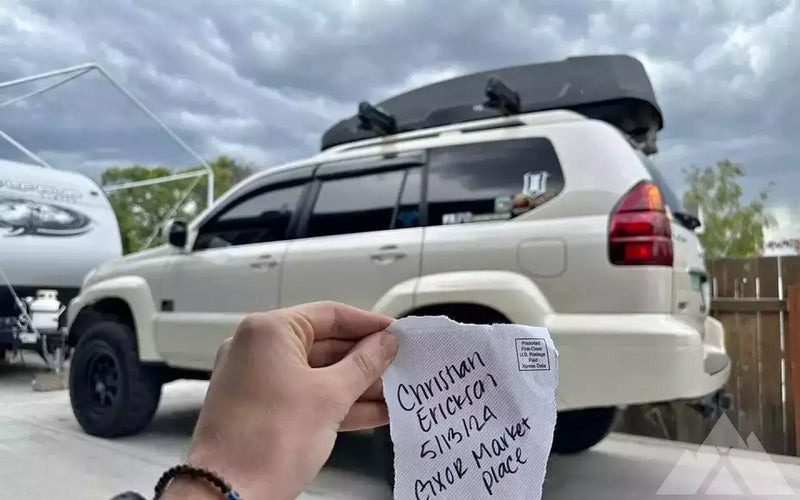 Presorted
First-Class
U.S. Postage
Paid
Xpress Data
Christian
Erickson
5/13/24
GIXOR Market
place